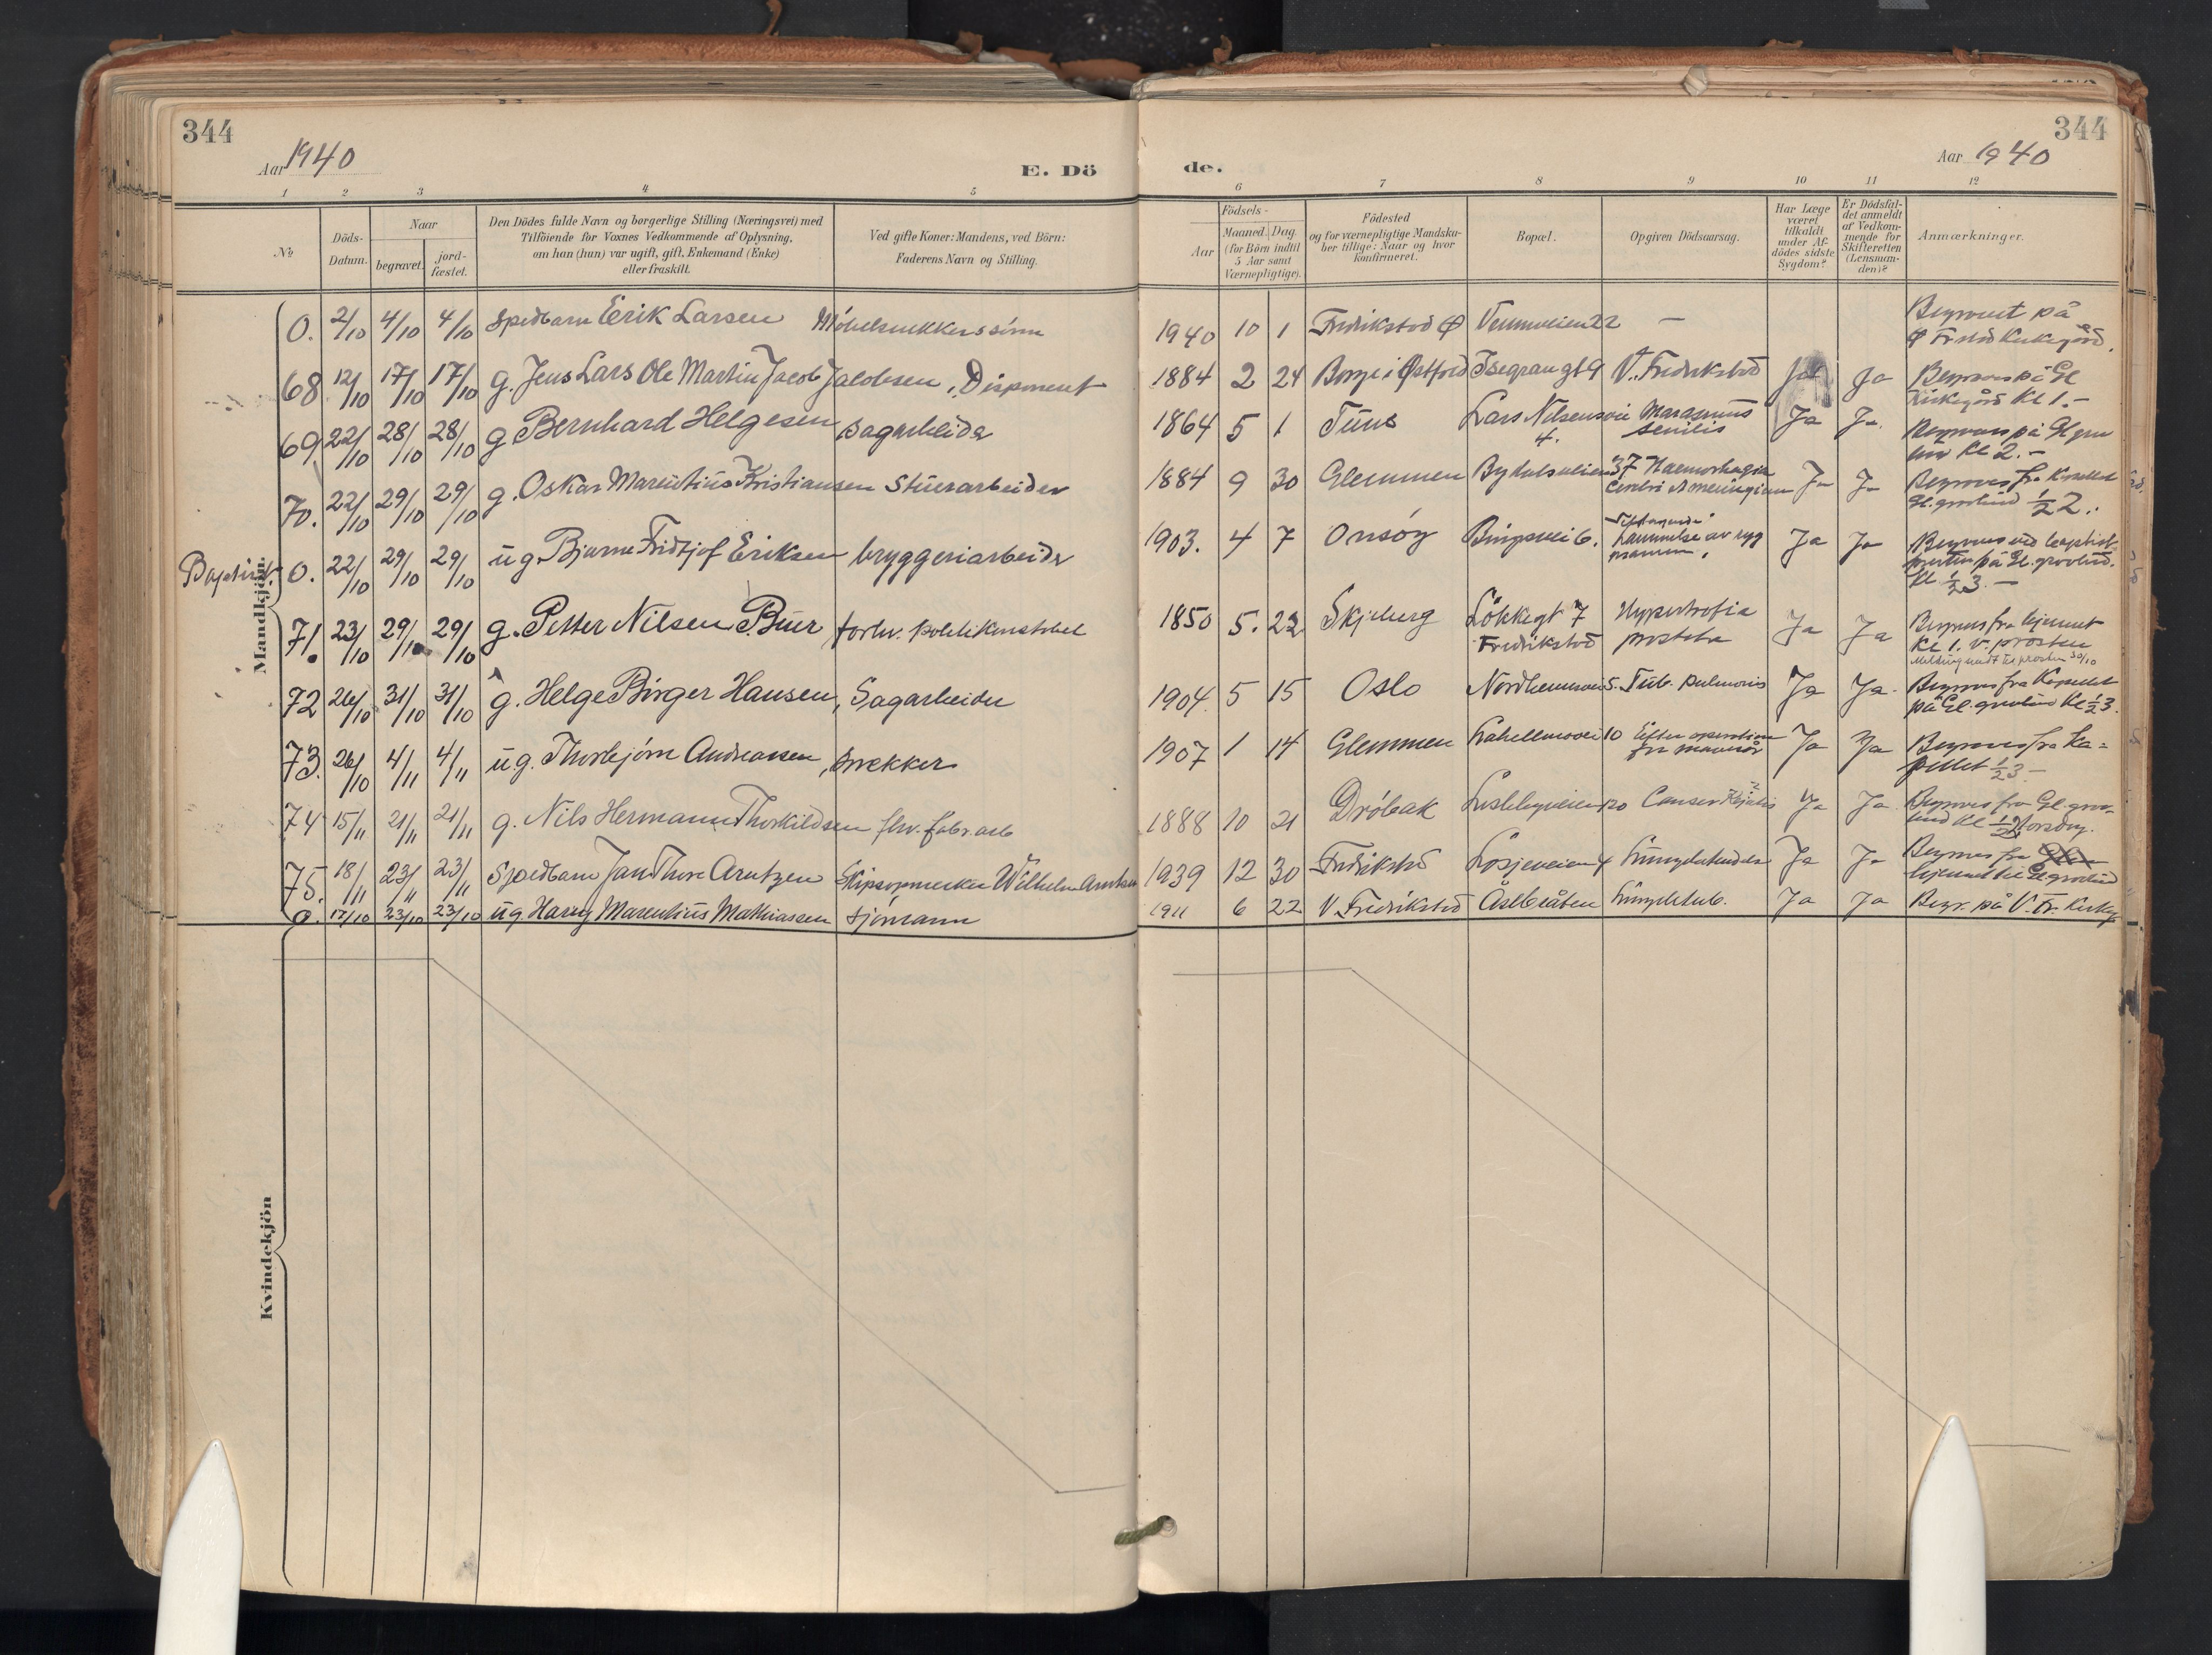 344
Aar 1940
E. Dö
de.
344
Aar 1940
1 2 3 4 5 6 7 8 9 10 11 12
№
Döds-Datum.
Naar
begravet.
jord-fæstet.
Den Dödes fulde Navn og borgerlige Stilling (Næringsvei) med
Tilföiende for Voxnes Vedkommende af Oplysning,
om han (hun) var ugift, gift, Enkemand (Enke)
eller fraskilt.
Ved gifte Koner: Mandens, ved Börn:
Faderens Navn og Stilling.
Födsels-
Aar
Maaned. Dag.
(for Börn indtil
5 Aar samt
Værnepligtige).
Födested
og for værnepligtige Mandska-
ber tillige: Naar og hvor
konfirmeret.
Bopæl.
Opgiven Dödsaarsag.
Har Læge
været
tilkaldt
under Af-
dödes sidste
Sygdom?
Er Dödsfal-
det anmeldt
af Vedkom-
mende for
Skifteretten
(Lensman-
den)?
Anmærkninger.
Mandkjön.
0. 2/10 4/10 4/10 Spedbarn Erik Larsen Möbelsnekkers sönn 1940 10 1 Fredrikstad Ø 22 —
68 12/10 17/10 17/10 g. Jens Lars Ole Martin Jacob Jacobsen, Disponent 1884 2 24 Borge i Østfold Isegrangt 9 V. Fredrikstad Ja Ja Kirkegård Kl 1.-
69 22/10 28/10 28/10 g Bernhard Helgesen Sagarbeider 1864 5 1 Tune Lars Nilsensvei 4. Marasmus senilis Ja Ja. Kl 2.-
70. 22/10 29/10 29/10 g. Oskar Marentius Kristiansen Stuerarbeider 1884 9 30 Glemmen 37 Haemorhagia Ja Ja ½ 2.
Baptist. 0. 22/10 29/10 29/10 ug. Bjarne Fridtjof Eriksen bryggeriarbeider 1903. 4 7 Onsöy 6. lammelse av Ja Ja på Gl. gravlund. Kl ½ 3.—
71. 23/10 29/10 29/10 g. Petter Nilsen Buer forhv. politikonstabel 1850 5. 22 Skjeberg Lökkegt 7 Fredrikstad Hypertrofia prostata Ja Ja Begraves fra hjemmet Kl 1. v. prosten
72 26/10 31/10 31/10 g. Helge Birger Hansen, Sagarbeider 1904. 5 15 Oslo 5. Tub. pulmonis Ja Ja. Begraves fra Kapellet på Gl. gravlund Kl ½ 3.
73. 26/10 4/11 4/11 ug. Thorbjörn Andreassen, Snekker 1907 1 14 Glemmen 10 Efter operation for mavesår Ja Ja Begraves fra Ka-
pellet ½ 3 —
74 15/11 21/11 21/11 g. Nils Hermann Thorkildsen fhv. fabr. arb 1888 10 21 Dröbak 20 Cancer Ja Ja Begraves fra Gl. grav-
lund Kl ½
75. 18/11 23/11 23/11 Spedbarn Jan Thore Arntzen Wilhelm Arntzen 1939 12 30 Fredrikstad Losjeveien 4 Ja Ja Begraves fra hjemmet til Gl gravlund
0. 17/10 23/10 23/10 ug Harry Marentius Mathiassen Sjömann 1911 6 22 V. Fredrikstad Åslbråten Lungetub. Ja Ja Begr. på V. Fr. Kirkeg
Kvindekjön